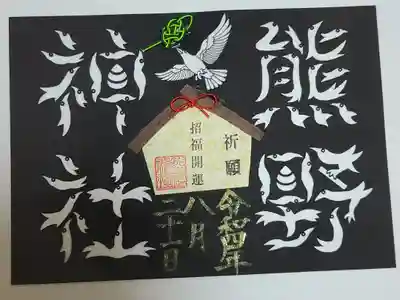 熊野
神社
祈願
招福開運
令和四年
八月
二十一日